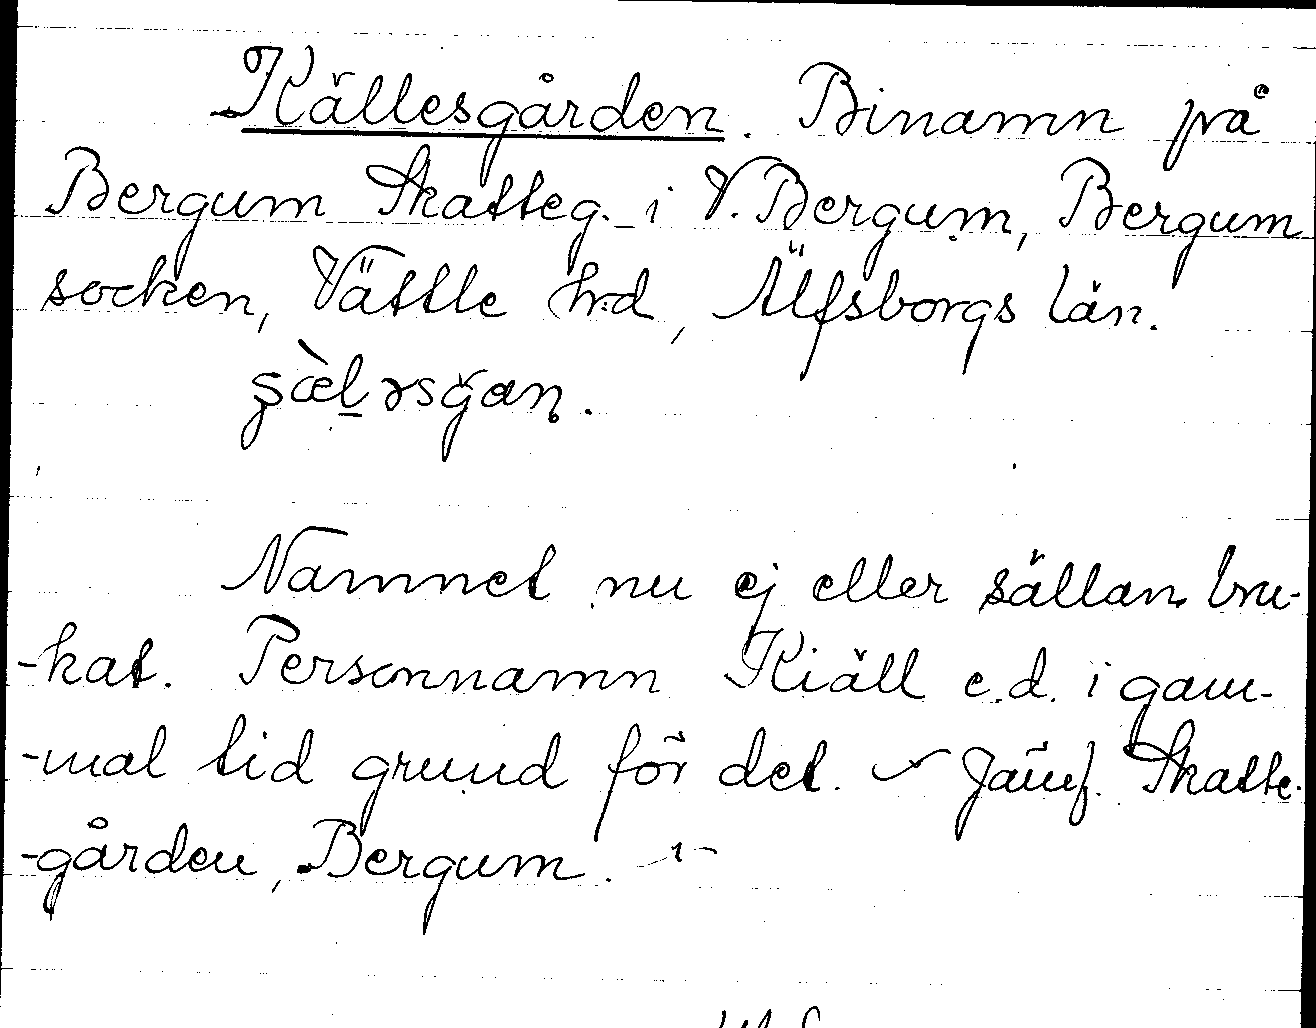 Källesgården. Binamn på
Bergum Skatteg. i V. Bergum, Bergum
socken, Vättle hd, Älfsborgs län.
Namnet nu ej eller sällan bru-
-kat. Personnamn Kiäll e.d. i gam-
-mal tid grund för det. Jämf. Skatte-
-gården, Bergum.